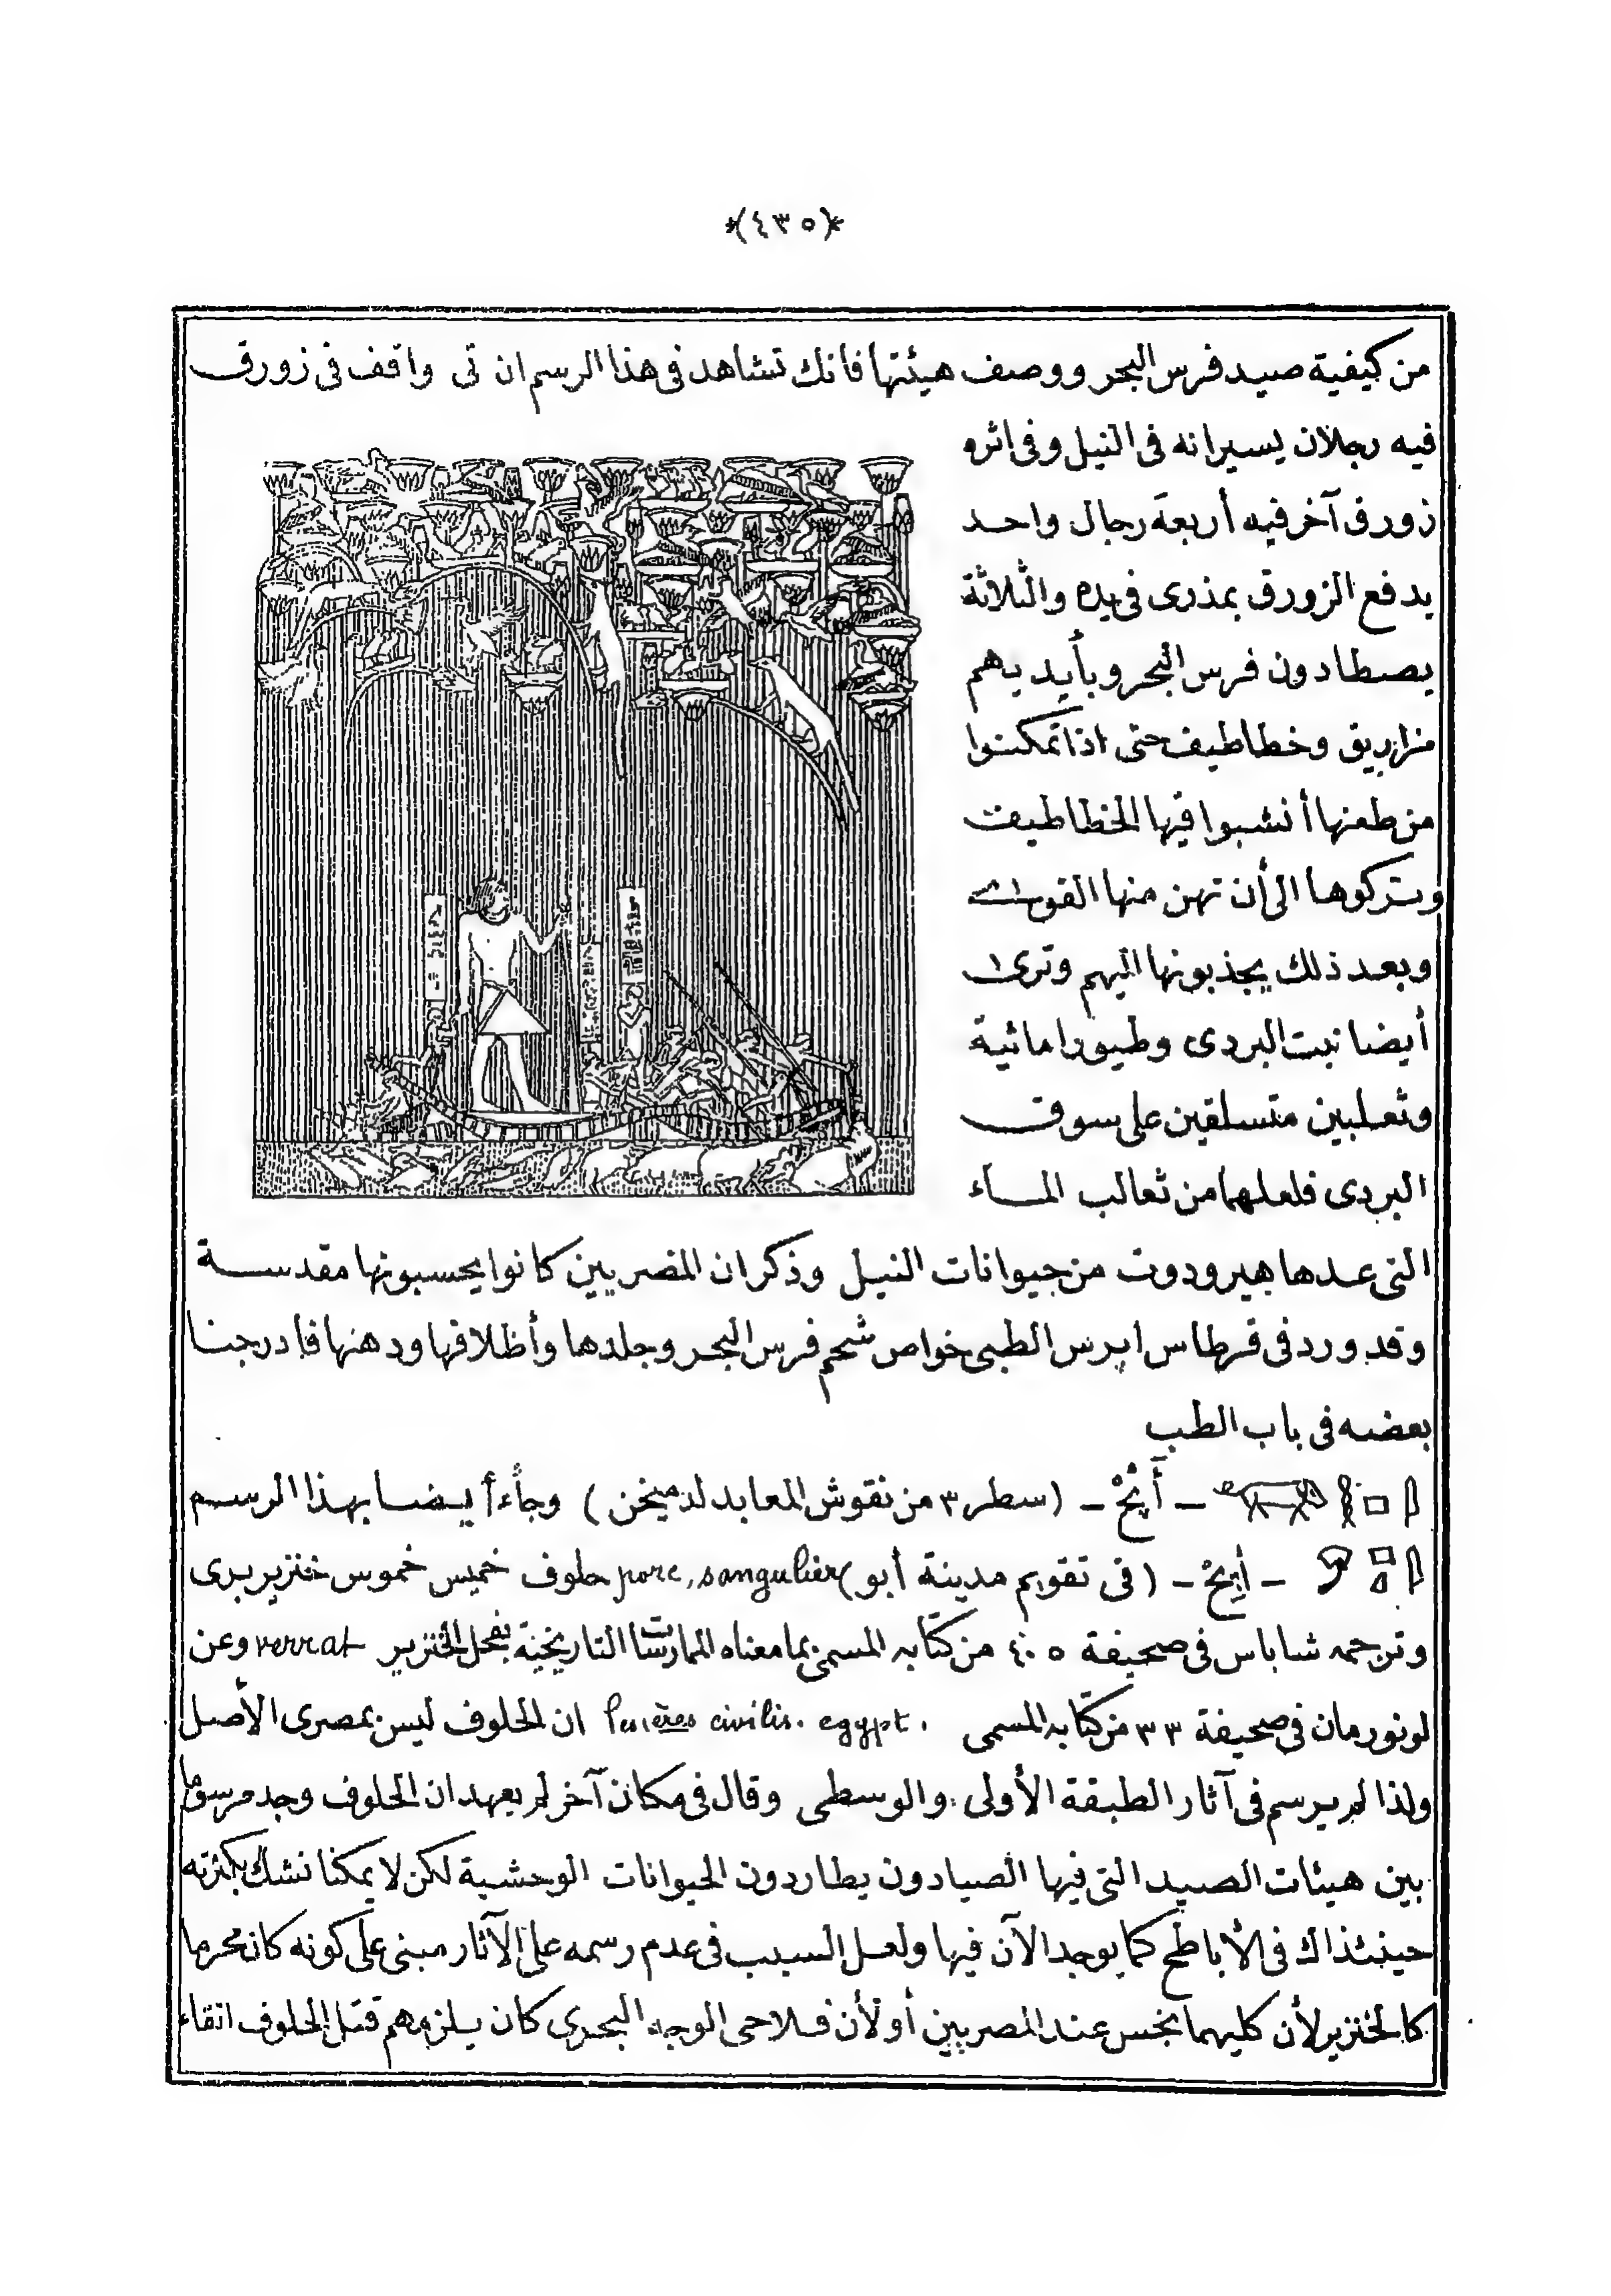 *(٤٣٥)*
من كيفية صيد فرس البحر ووصف هيئتها فانك تشاهد فى هذا الرسم ان تى واقف فى زورق
فيه رجلان يسيرانه فى النيل وفى اثره
زورق آخر فيه أربعة رجال واحد
يدفع الزورق بمذرى فى يده والثلاثة
يصطادون فرس البحر وبأيديهم
مزاريق وخطاطيف حتى اذا تمكنوا
من طعنها أنشبوا فيها الخطاطيف
وتركوها الى أن تهن منها القوى
وبعد ذلك يجذبونها اليهم وترى
أيضا نبت البردى وطيورا مائية
وثعلبين متسلقين على سوق
البردى فلعلهما من ثعالب الماء
التى عدها هيرودوت من حيوانات النيل وذكر ان المصريين كانوا يحسبونها مقدسة
وقد ورد فى قرطاس ايرس الطبى خواص شحم فرس البحر وجلدها وأظلافها ودهنها فادرجنا
بعضه فى باب الطب
— أَپُحْ — (سطر ٣ من نقوش المعابد لدميخن) وجاء أيضا بهذا الرسم
— أپِحْ — (فى تقويم مدينة أبو) porc, sangulier حلوف خميس خموس خنزير برى
وترجمه شاباس فى صحيفة ٤٠٥ من كتابه المسمى بما معناه الممارسات التاريخية بفحل الخنزير verrat وعن
لونورمان فى صحيفة ٣٣ من كتابه المسمى civilis. egypt. ان الحلوف ليس بمصرى الأصل
ولذا لم يرسم فى آثار الطبقة الأولى والوسطى وقال فى مكان آخر لم يعهد ان الحلوف وجد مرسوما
بين هيئات الصيد التى فيها الصيادون يطاردون الحيوانات الوحشية لكن لا يمكنا نشك بكثرته
حينئذاك فى الأباطح كما يوجد الآن فيها ولعل السبب فى عدم رسمه على الآثار مبنى على كونه كان محرما
كالخنزير لأن كليهما نجس عند المصريين أو لأن فلاحى الوجه البحرى كان يلزمهم قتل الحلوف اتقاء